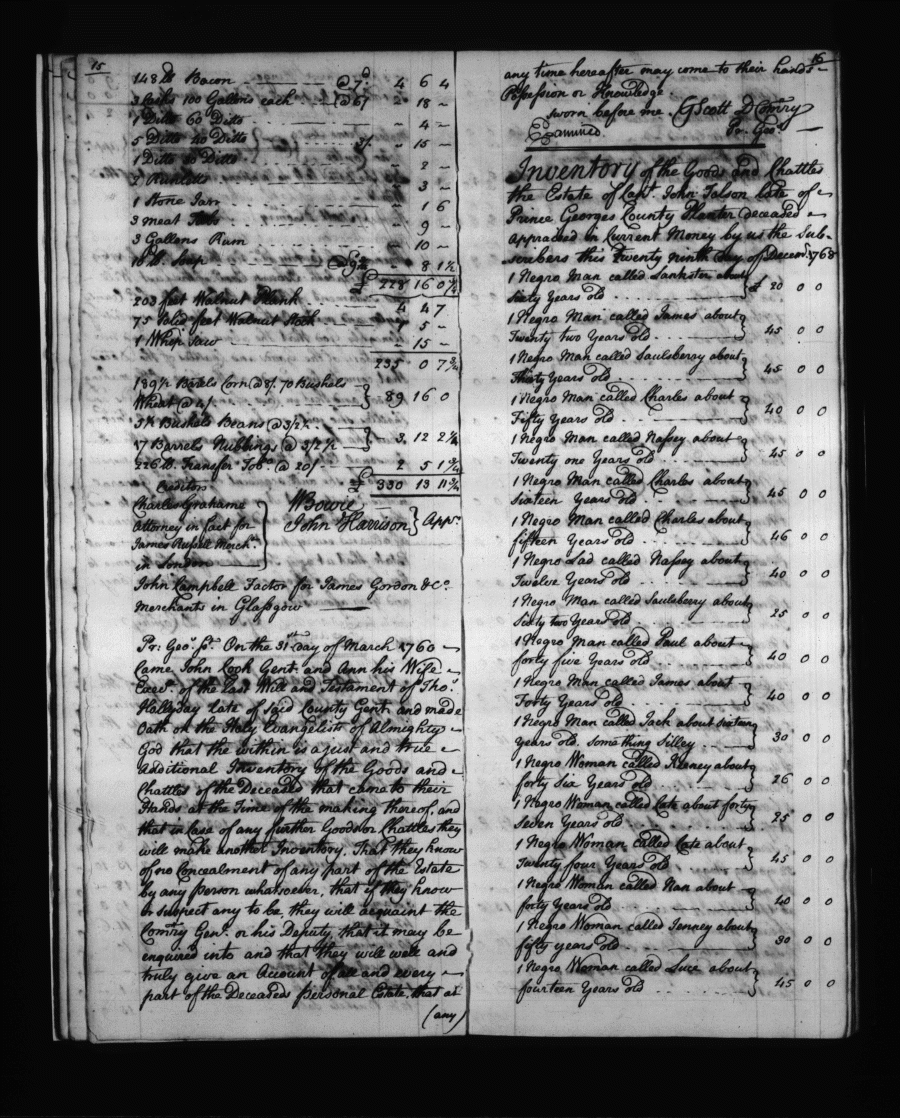 15
148 lb Bacon @ 7d 4 6 4
3 Casks 100 Gallons each @ 6/ - 18 -
1 Ditto 60 Ditto - 4 -
5 Ditto 40 Ditto 3/. - 15 -
1 Ditto Ditto - 2 -
2 Runletts - 3 -
1 Stone Jarr - 1 6
3 meat - 9 -
3 Gallons Rum - 10 -
lb Soap - 8 1½
£ 228 16 0¼
203 feet Walnut Plank 4 4 7
75 Solid feet Walnut 5 -
1 Whip Saw - 15 -
235 0 7¾
189½ Barels Corn @ 8/. 70 Bushels
Wheat @ 4/ 89 16 0
Bushels Beans @ 3/2
17 Barrels Nubbings @ 3/2 3, 12 2¼
226 lb. Transfer Tobo. @ 20/ 2 5 1¾
£ 330 13 11¾
Creditors
Charles Grahame
Attorney in Fact for
James Russell Mercht.
in London
WBowie
John Harrison } Appr.
John Campbell Factor for James Gordon & Co.
Merchants in Glasgow
Pr: Geo's. St. On the 31st day of March 1760
Came John Cook Gent. and Ann his Wife
Execx. of the last Will and Testament of Tho:
Hallyday Late of Said County Gent. and made
Oath on the Holy Evangelists of Almighty
God that the within is a just and true
Additional Inventory of the Goods and
Chattles of the Deceased that came to their
Hands at the Time of the making thereof, and
that in Case of any further Goods or Chattles they
will make another Inventory. That they know
of no Concealment of any part of the Estate
by any Person whatsoever, that if they know
or suspect any to be, they will acquaint the
Comry Genl. or his Deputy, that it may be
enquired into and that they will well and
truly give an Account of all and every
part of the Deceased Personal Estate, that at
(any)
16
any time hereafter may come to their hands
Possession or Knowledge
sworn before me. GScott D Comry
Examined Pr. Geo's
Inventory of the Goods and Chattles
the Estate of Capt. John Talson late of
Prince Georges County Planter Deceased
Appraised in Current Money by us the Sub-
scribers this Twenty Ninth day of Decemr. 1768
1 Negro Man called Sankster about
Sixty Years old £ 20 0 0
1 Negro Man called James about
Twenty two Years old 45 0 0
1 Negro Man called Saulsberry about
Thirty Years old 45 0 0
1 Negro Man called Charles about
Fifty Years old 40 0 0
1 Negro Man called Nassey about
Twenty one Years old 45 0 0
1 Negro Man called Charles about
Sixteen Years old 45 0 0
1 Negro Man called Charles about
fifteen Years old 46 0 0
1 Negro Lad called Nassey about
Twelve Years old 40 0 0
1 Negro Man called Saulsberry about
Sixty two Years old 25 0 0
1 Negro Man called Paul about
forty five Years old 40 0 0
1 Negro Man called James about
Forty Years old 40 0 0
1 Negro Man called Jack about sixteen
Years old. something Silley 30 0 0
1 Negro Woman called Keaney about
forty Six Years old 26 0 0
1 Negro Woman called Cate about forty
Seven Years old 25 0 0
1 Negro Woman called Cate about
Twenty four Years old 45 0 0
1 Negro Woman called Nan about
forty Years old 40 0 0
1 Negro Woman called Jenney about
fifty years old 30 0 0
1 Negro Woman called Luce about
fourteen Years old 45 0 0